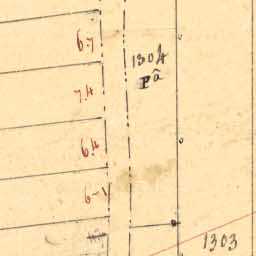 6.7
1304
Pâ
7.4
6.4
6-1
1303